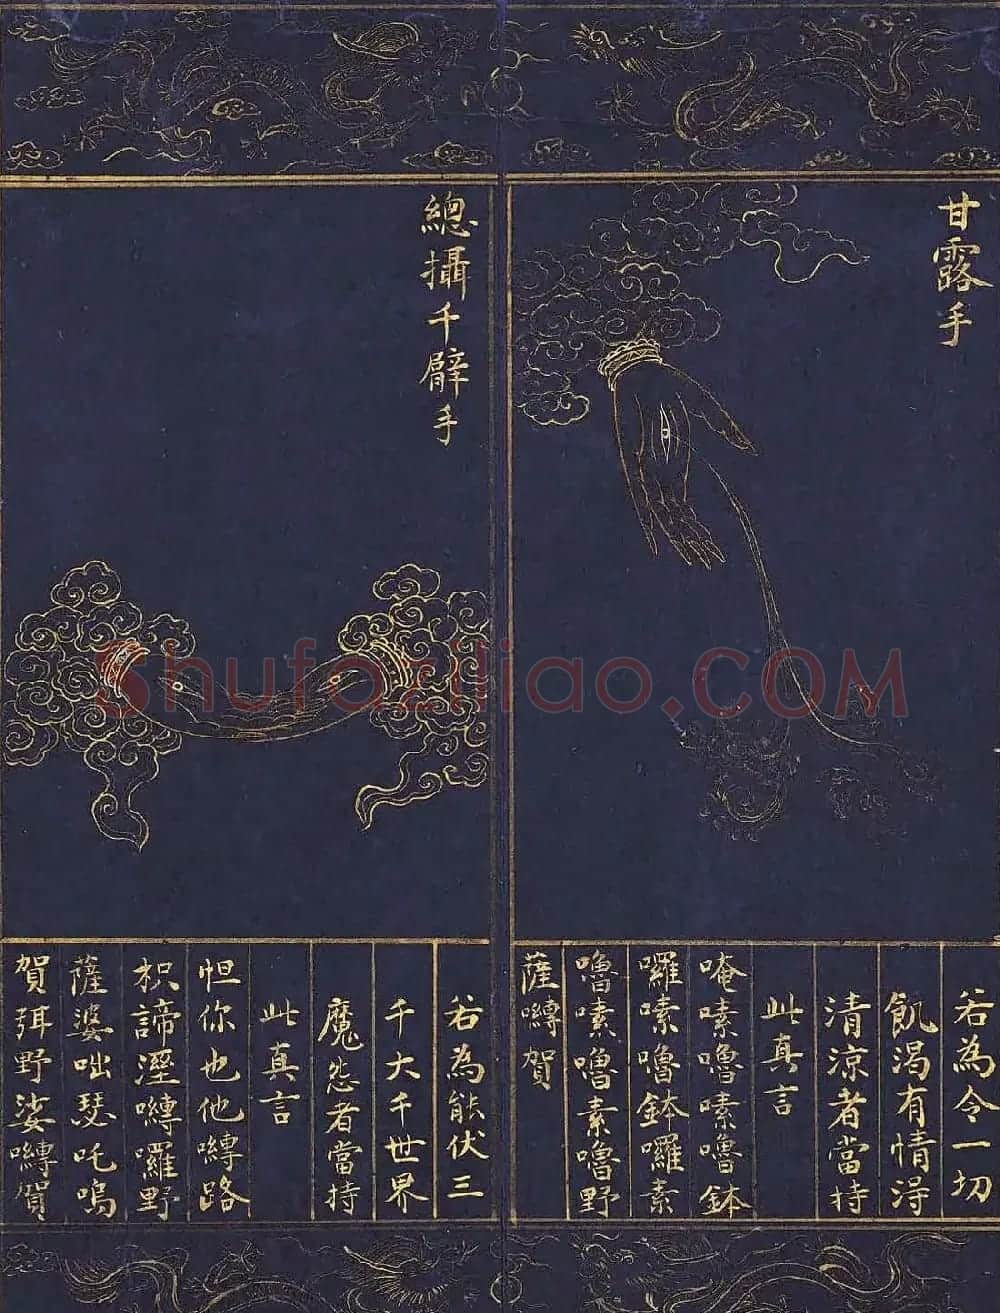 甘露手
若為令一切
飢渴有情得
清涼者當持
此真言
唵嗉嚕嗉嚕鉢
囉嗉嚕鉢囉素
嚕嗉嚕素嚕野
薩嚩賀
總攝千臂手
若為能伏三
千大千世界
魔怨者當持
此真言
怛你也他嚩路
枳諦溼嚩囉野
薩婆咄瑟吒嗚
賀弭野娑嚩賀
Shufaziliao.COM